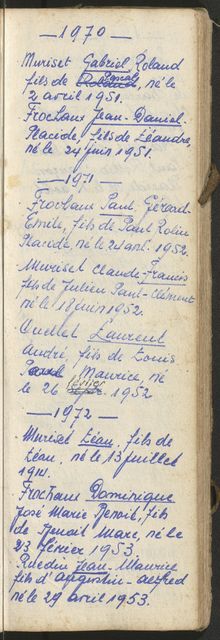 — 1970 —
Muriset Gabriel Roland
fils de Romain, né le
2 avril 1951.
Frochaux Jean-Daniel.
Placide, fils de Léandre,
né le 24 juin 1951.
— 1971 —
Frochaux Paul Gérard-
Emile, fils de Paul Robin
Placide, né le 24 avril. 1952.
Muriset Claude-Francis
fils de Julien Paul-Clément
né le 18 juin 1952.
Quellet Laurent
André, fils de Louis
Maurice, né
le 26 février 1952
— 1972 —
Muriset Léan, fils de
Léan, né le 13 juillet
Frochaux Dominique
José Marie Benoit, fils
de Benoit Marc, né le
23 février 1953.
Ruedin Jean-Maurice
fils d'Augustin-Alfred
né le 29 avril 1953.